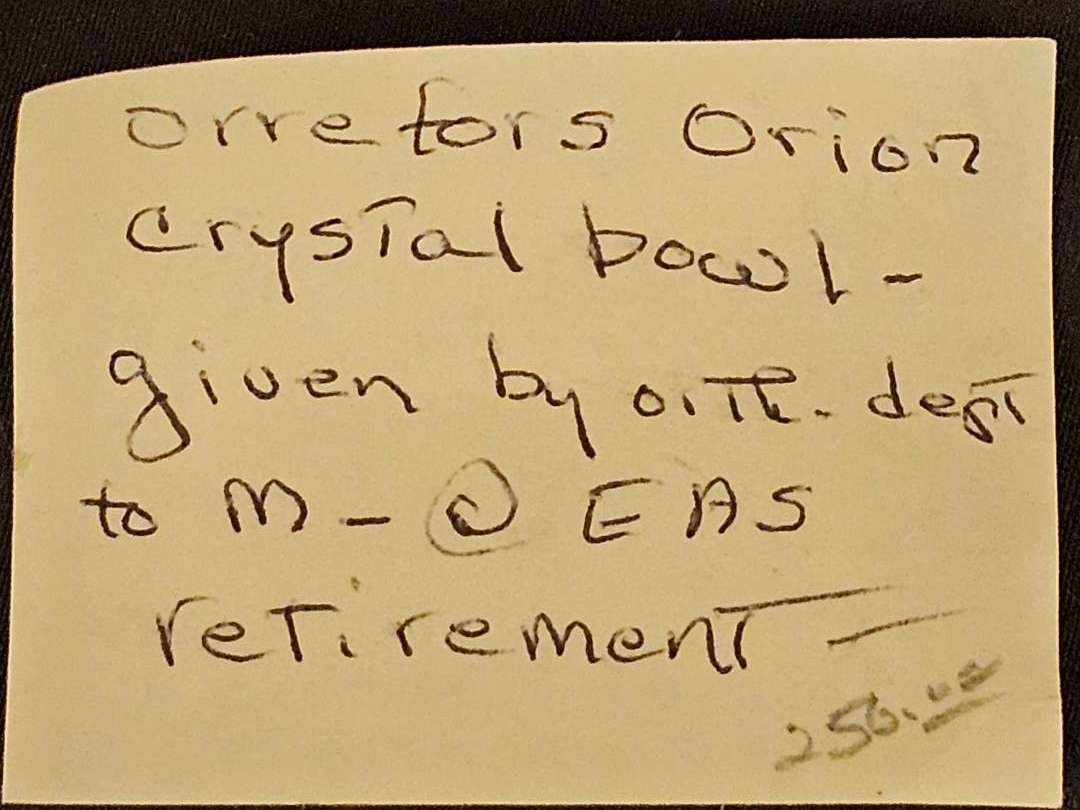 orrefors Orion
crystal bowl -
given by orth. dept
to M - @ EAS
retirement —
250.00